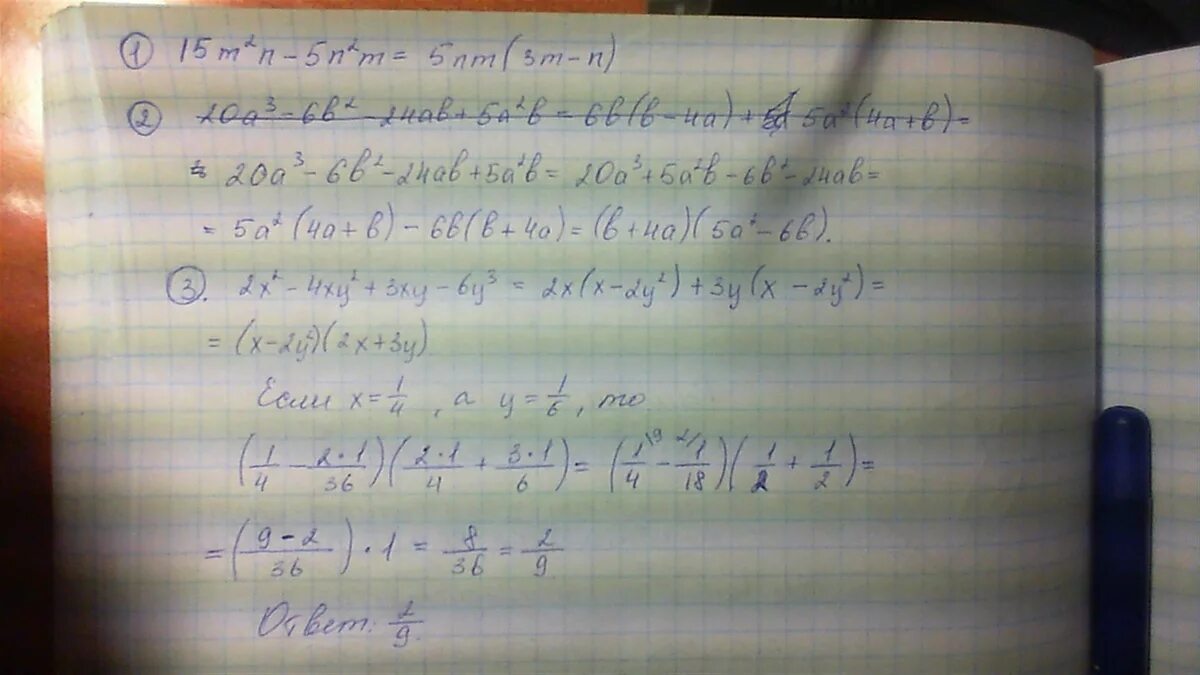 ① 15m²n - 5n²m = 5nm(3m - n)
② 20a³ - 6b² - 24ab + 5a²b = 6b(b - 4a) + 5a²(4a + b) =
20a³ - 6b² - 24ab + 5a²b = 20a³ + 5a²b - 6b² - 24ab =
= 5a² (4a + b) - 6b(b + 4a) = (b + 4a)(5a² - 6b).
③. 2x² - 4xy² + 3xy - 6y³ = 2x(x - 2y²) + 3y(x - 2y²) =
= (x - 2y²)(2x + 3y)
Если x = 1/4, а y = 1/6, то
(1/4 - 2·1/36)(2·1/4 + 3·1/6) = (1\9/4 - 2/1/18)(1/2 + 1/2) =
= (9 - 2/36) · 1 = 8/36 = 2/9
Ответ: 2/9.